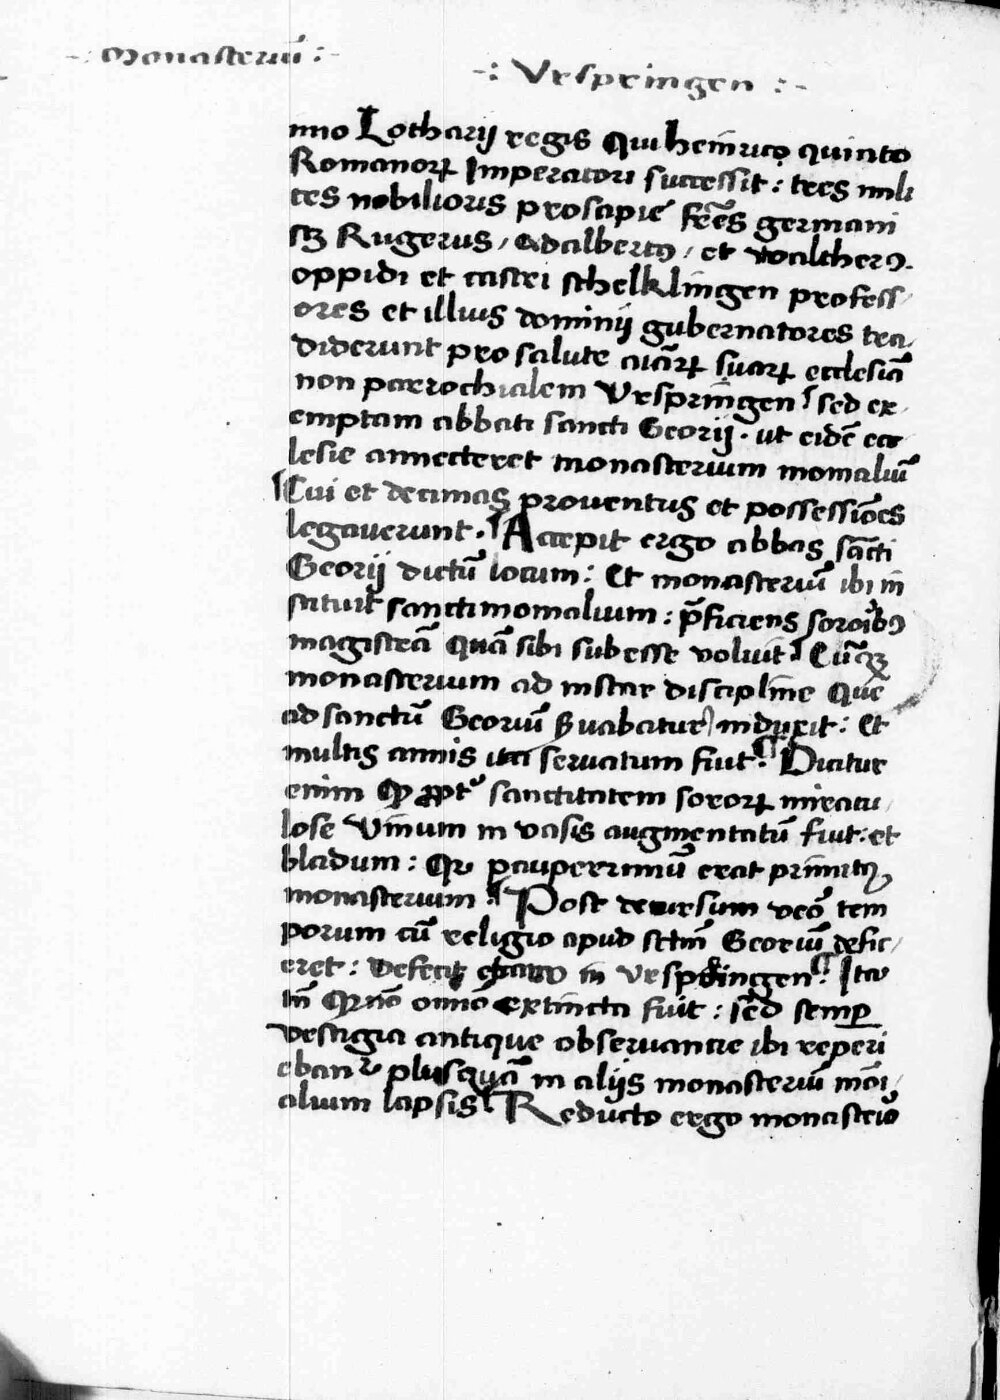 -: Monasteriū :-
-: Vrspringen :-
nno Lotharij regis Qui heinrico quinto
Romanorꝝ Imperatori successit : tres mili
tes nobilioris prosapie fr̄es germani
sꝫ Rugerus / Adalbertꝰ / et waltherꝰ.
oppidi et castri schelklingen profess/
ores et illius dominij gubernatores tra/
diderunt pro salute aīarꝝ suarꝝ ecclesiā
non parrochialem Vrspringen / sed ex/
emptam abbati sancti Georij · ut eidē ecc
lesie annecteret monasterium monialiū
Cui et decimas prouentus et possessiōes
legauerunt · Accepit ergo abbas sācti
Georij dictū locum : Et monasteriū ibi in
stituit sanctimonialium : p̄ficiens sororibꝰ
magistrā Quā sibi subesse voluit Cūqꝫ
monasterium ad instar discipline Que
ad sanctū Georiū ẜuabatur induxit : Et
multis annis ita seruatum fuit · Dicitur
enim Qꝫ ꝓpt᷑ sanctitatem sororꝝ miracu/
lose Vinum in vasis augmentatū fuit : et
bladum : Qꝛ pauperrimū erat primitꝰ
monasterium · Post decursum vēo tem
porum cū religio apud sctm̄ Georiū defic/
eret : defecit in vrspringen · Ita
tn̄ Qꝫ nō oīno extincta fuit : sed semꝑ
vestigia antique obseruancie ibi reperi
ebanᷣ plusquā in alijs monasteriū mōi/
alium lapsis Reducto ergo monasterio